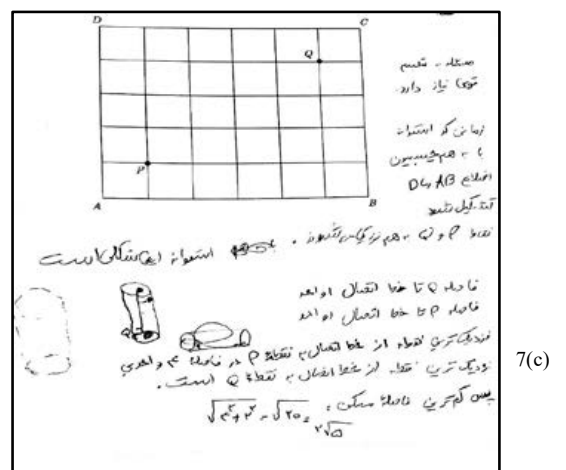 D C
Q
P
A B
مسئله -
نیاز دارد.
زمانی که استوانه
با به هم چسبیدن
اضلاع AB و DC
تشکیل شود
نقاط P و Q به هم نزدیک می‌شوند. استوانه این شکلی است
فاصله Q تا خط اتصال ۱ واحد
فاصله P تا خط اتصال ۱ واحد
نزدیک ترین نقطه از خط اتصال به نقطهٔ P در فاصلهٔ ۴ واحدی
نزدیک ترین نقطه از خط اتصال به نقطهٔ Q است.
پس کم ترین فاصلهٔ ممکن:
7(c)